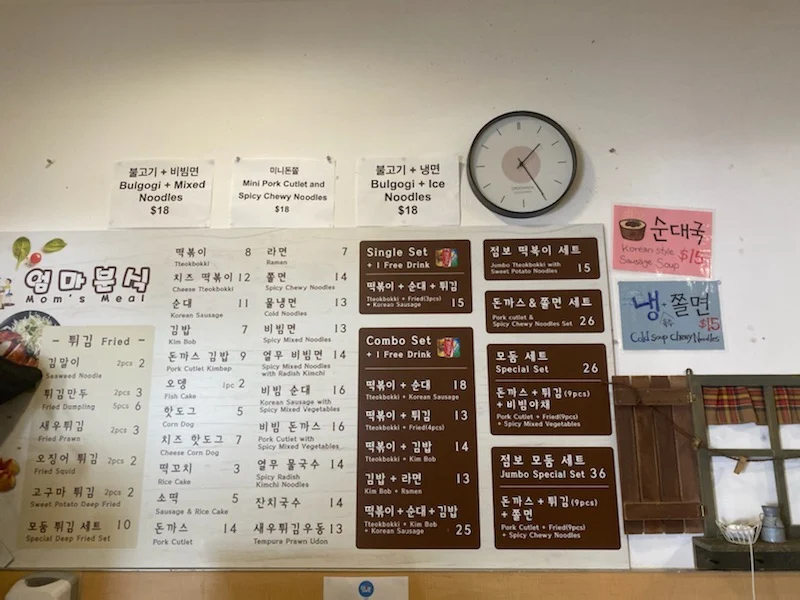 불고기 + 비빔면
Bulgogi + Mixed
Noodles
$18
미니돈쫄
Mini Pork Cutlet and
Spicy Chewy Noodles
$18
불고기 + 냉면
Bulgogi + Ice
Noodles
$18
순대국
Korean-style
Sausage Soup
$15
냉쫄면
$15
Cold soup Chewy Noodles
엄마분식
Mom's Meal
- 튀김 Fried -
김말이 2pcs 2
Seaweed Noodle
튀김만두 2pcs 3
Fried Dumpling 5pcs 6
새우튀김 2pcs 3
Fried Prawn
오징어 튀김 2pcs 2
Fried Squid
고구마 튀김 2pcs 2
Sweet Potato Deep Fried
모둠 튀김 세트 10
Special Deep Fried Set
떡볶이 8
Tteokbokki
치즈 떡볶이 12
Cheese Tteokbokki
순대 11
Korean Sausage
김밥 7
Kim Bob
돈까스 김밥 9
Pork Cutlet Kimbap
오뎅 1pc 2
Fish Cake
핫도그 5
Corn Dog
치즈 핫도그 7
Cheese Corn Dog
떡꼬치 3
Rice Cake
소떡 5
Sausage & Rice Cake
돈까스 14
Pork Cutlet
라면 7
Ramen
쫄면 14
Spicy Chewy Noodles
물냉면 13
Cold Noodles
비빔면 13
Spicy Mixed Noodles
열무 비빔면 14
Spicy Mixed Noodles
with Radish Kimchi
비빔 순대 16
Korean Sausage with
Spicy Mixed Vegetables
비빔 돈까스 16
Pork Cutlet with
Spicy Mixed Vegetables
열무 물국수 14
Spicy Radish
Kimchi Noodles
잔치국수 14
새우튀김우동 13
Tempura Prawn Udon
Single Set
+ 1 Free Drink
떡볶이 + 순대 + 튀김
Tteokbokki + Fried(3pcs)
+ Korean Sausage 15
Combo Set
+ 1 Free Drink
떡볶이 + 순대 18
Tteokbokki + Korean Sausage
떡볶이 + 튀김 13
Tteokbokki + Fried(4pcs)
떡볶이 + 김밥 14
Tteokbokki + Kim Bob
김밥 + 라면 13
Kim Bob + Ramen
떡볶이+순대+김밥
Tteokbokki + Kim Bob
+ Korean Sausage 25
점보 떡볶이 세트
Jumbo Tteokbokki with
Sweet Potato Noodles 15
돈까스&쫄면 세트
Pork cutlet &
Spicy Chewy Noodles Set 26
모둠 세트
Special Set 26
돈까스 + 튀김(9pcs)
+ 비빔야채
Pork Cutlet + Fried(9pcs)
+ Spicy Mixed Vegetables
점보 모둠 세트
Jumbo Special Set 36
돈까스 + 튀김(9pcs)
+ 쫄면
Pork Cutlet + Fried(9pcs)
+ Spicy Chewy Noodles